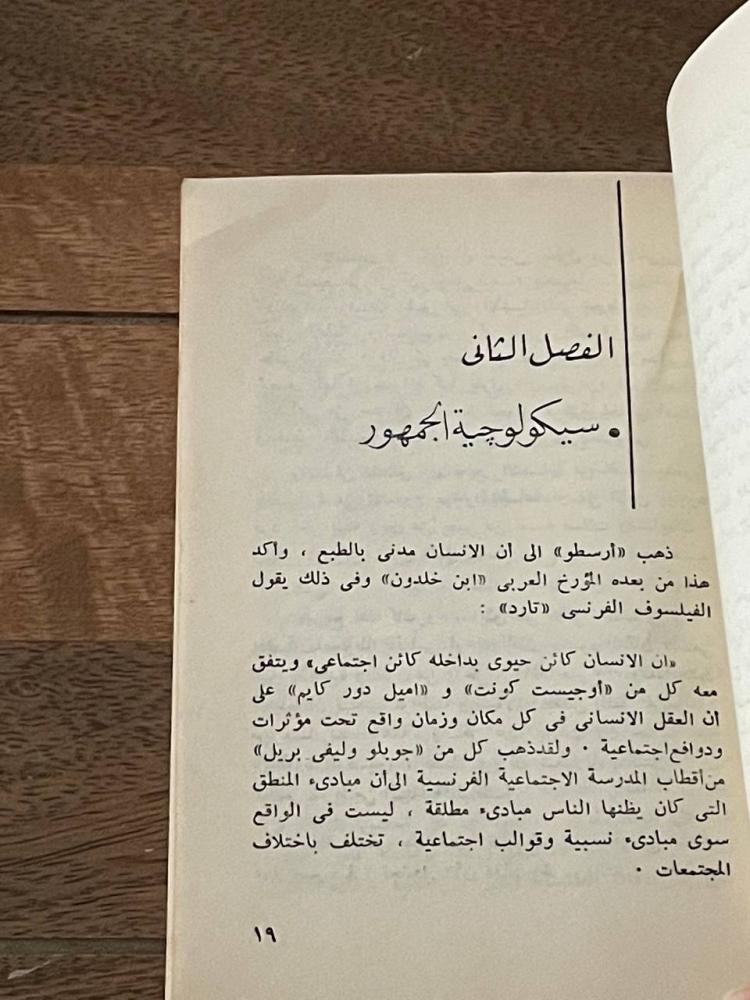 الفصل الثانى
• سيكولوچية الجمهور
ذهب «أرسطو» الى أن الانسان مدنى بالطبع ، وأكد
هذا من بعده المؤرخ العربى «ابن خلدون» وفى ذلك يقول
الفيلسوف الفرنسى «تارد» :
«ان الانسان كائن حيوى بداخله كائن اجتماعى» ويتفق
معه كل من «أوجيست كونت» و «اميل دور كايم» على
أن العقل الانسانى فى كل مكان وزمان واقع تحت مؤثرات
ودوافع اجتماعية . ولقد ذهب كل من «جوبلو وليفى بريل»
من أقطاب المدرسة الاجتماعية الفرنسية الى أن مبادىء المنطق
التى كان يظنها الناس مبادىء مطلقة ، ليست فى الواقع
سوى مبادىء نسبية وقوالب اجتماعية ، تختلف باختلاف
المجتمعات .
١٩